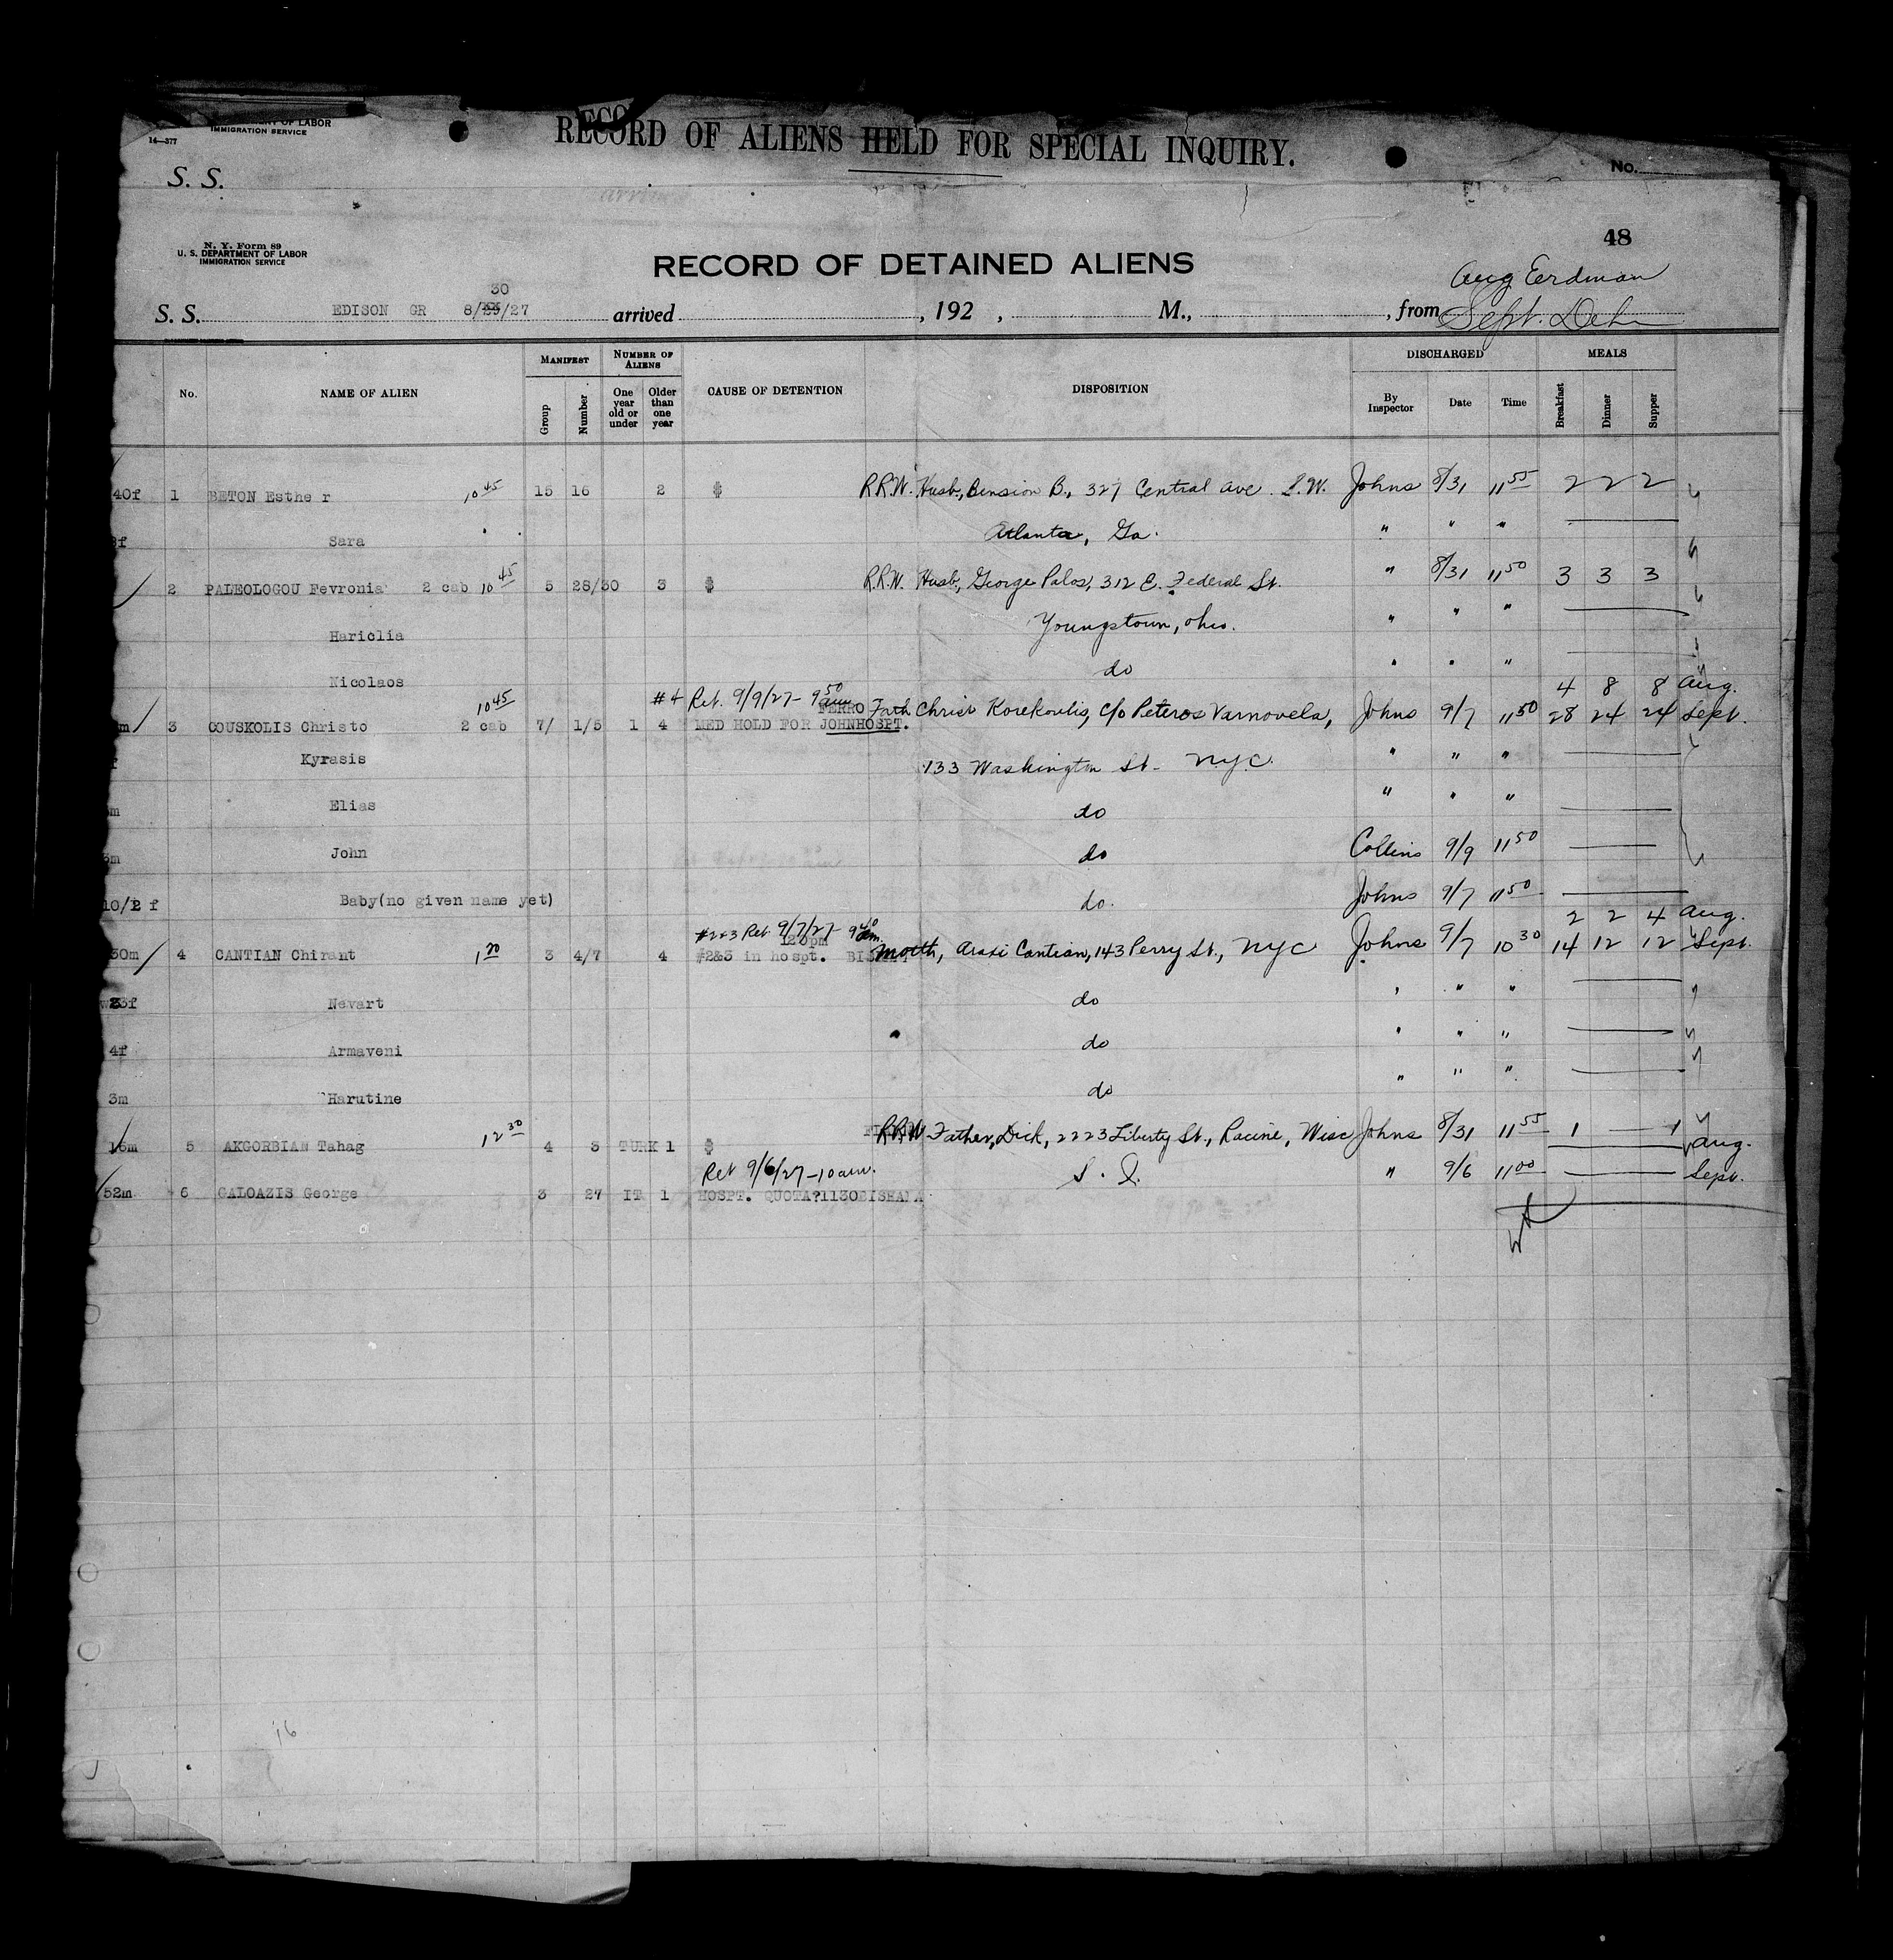 OF LABOR
IMMIGRATION SERVICE
14—377
RECORD OF ALIENS HELD FOR SPECIAL INQUIRY.
No.
S. S.
48
N. Y. Form 89
U. S. DEPARTMENT OF LABOR
IMMIGRATION SERVICE
RECORD OF DETAINED ALIENS
Aug Eerdman
30
S. S. EDISON GR 8/29/27 arrived , 192 , M., , from Sept. Dehn
MANIFEST NUMBER OF ALIENS DISCHARGED MEALS
No. NAME OF ALIEN Group Number One year old or under Older than one year CAUSE OF DETENTION DISPOSITION By Inspector Date Time Breakfast Dinner Supper
40f 1 BETON Esther 10 45 15 16 2 $ R.R.W. Husb, Bension B., 327 Central Ave. S.W. Johns 8/31 11 55 2 2 2
f Sara Atlanta, Ga. " " "
2 PALEOLOGOU Fevronia 2 cab 10 45 5 28/30 3 $ R.R.W. Husb, George Palos, 312 E. Federal St. " 8/31 11 50 3 3 3
Hariclia Youngstown, Ohio. " " "
Nicolaos do " " "
10 45 #4 Ret. 9/9/27 - 9 50 am FERRO 4 8 8 Aug.
m 3 COUSKOLIS Christo 2 cab 7/ 1/5 1 4 MED HOLD FOR JOHNHOSPT. Fath Christ Korekoulis, c/o Peteros Varnovela, Johns 9/7 11 50 28 24 24 Sept.
Kyrasis 133 Washington St. NYC. " " "
m Elias do " " "
m John do Collins 9/9 11 50
10/12 f Baby(no given name yet) do. Johns 9/7 11 50
#2&3 Ret 9/7/27 - 9 40 am. 2 2 4 Aug.
1220pm
30m 4 CANTIAN Chirant 1 20 3 4/7 4 #2&3 in hospt. Moth, Araxi Cantian, 143 Perry St., NYC Johns 9/7 10 30 14 12 12 Sept.
23f Nevart do " " "
4f Armaveni do " " "
3m Harutine do " " "
16m 5 AKGORBIAN Tahag 12 30 4 3 TURK 1 $ RRW Father, Dick, 2223 Liberty St., Racine, Wisc Johns 8/31 11 55 1 — 1 Aug.
Ret 9/6/27 - 10 am. S. I. " 9/6 11 00 Sept.
52m 6 CALOAZIS George 3 27 IT 1 HOSPT. QUOTA?1130BISHANA
16